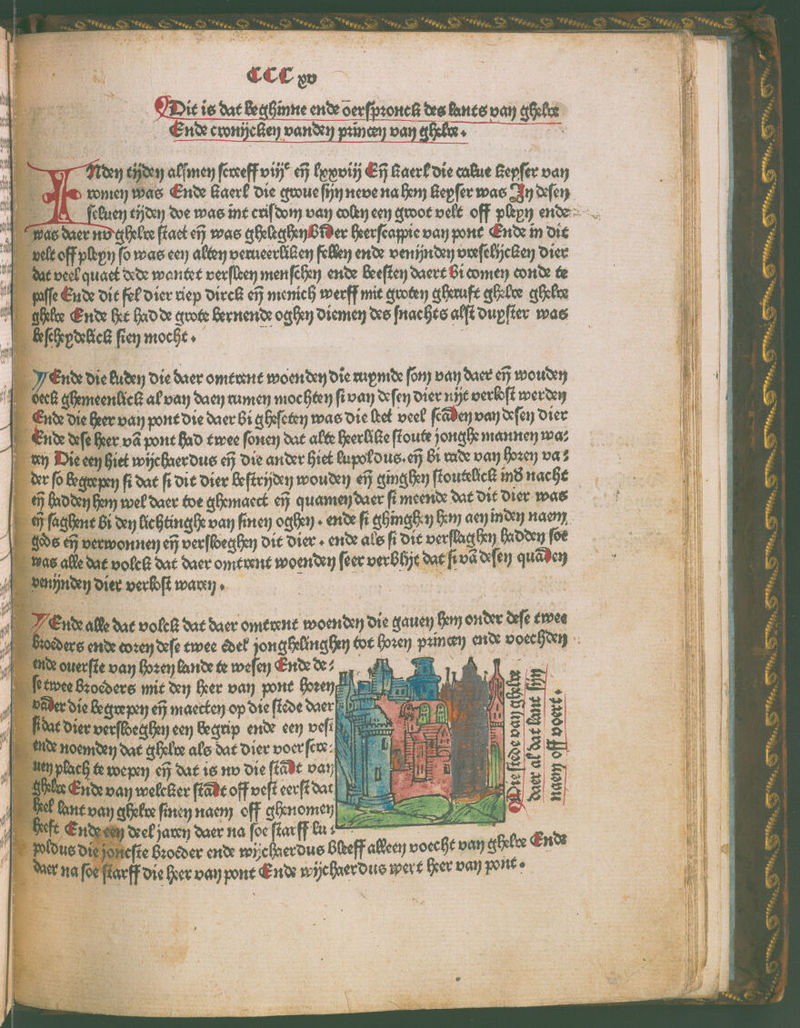 CCC xv
Dit is dat beghinne ende oerspronck des lants van ghelre
Ende cronijcken vanden princen van ghelre.
INden tijden alsmen screeff viijᶜ eñ lxxviij Eñ kaerl die calue keyser van
romen was Ende kaerl die groue sijn neve na hem keyser was In desen
seluen tijden doe was int crisdom van colen een groot velt off pleyn ende
was daer nv ghelre staet eñ was gheleghen ōder heerscappie van pont Ende in dit
velt off pleyn so was een alten verueerliken fellen ende venijnden vreselijcken dier
dat veel quaet dede wantet versleen menschen ende beesten daert bi comen conde te
passe Ende dit fel dier riep dirck eñ menich werff mit groten gheruft ghelre ghelre
ghelre Ende het hadde grote bernende oghen diemen des snachts alst duyster was
bescheydelick sien mocht.
Ende die luden die daer omtrent woenden die ruymde som van daer eñ wouden
oeck ghemeenlick al van daen rumen mochten si van desen dier nijt verlost werden
Ende die heer van pont die daer bi gheseten was die leet veel scāden van desen dier
Ende dese heer vā pont had twee sonen dat alte heerlike stoute jonghe mannen wa⸗
ren Die een hiet wijchaerdus eñ die ander hiet lupoldus. eñ bi rade van horen va⸗
der so begrepen si dat si dit dier bestrijden wouden eñ ginghen stoutelick ind nacht
eñ hadden hem wel daer toe ghemaect eñ quamen daer si meende dat dit dier was
eñ saghent bi den lichtinghe van sinen oghen. ende si ghinghen hem aen inden naem
gods eñ verwonnen eñ versloeghen dit dier. ende als si dit verslaghen hadden soe
was alle dat volck dat daer omtrent woenden seer verblijt dat si vā desen quāden
venijnden dier verlost waren.
Ende alle dat volck dat daer omtrent woenden die gauen hem onder dese twee
broeders ende coren dese twee edel jonghelinghen tot horen princen ende voechden
ende ouerste van horen lande te wesen Ende de⸗
se twee broeders mit den heer van pont horen
vader die begrepen eñ maecten op die stede daer
si dat dier versloeghen een begrip ende een vest
ende noemden dat ghelre als dat dier voerscre⸗
uen plach te roepen eñ dat is nv die stadt van
ghelre Ende van welcker stadt off vest eerst dat
heel lant van ghelre sinen naem off ghenomen
heeft Ende een deel jaren daer na soe starff lu⸗
poldus die joncste broeder ende wijchaerdus bleeff alleen voecht van ghelre Ende
daer na soe starff die heer van pont Ende wijchaerdus wert heer van pont.
Die stede van ghelre
daer al dat lant sijn
naem off voert.